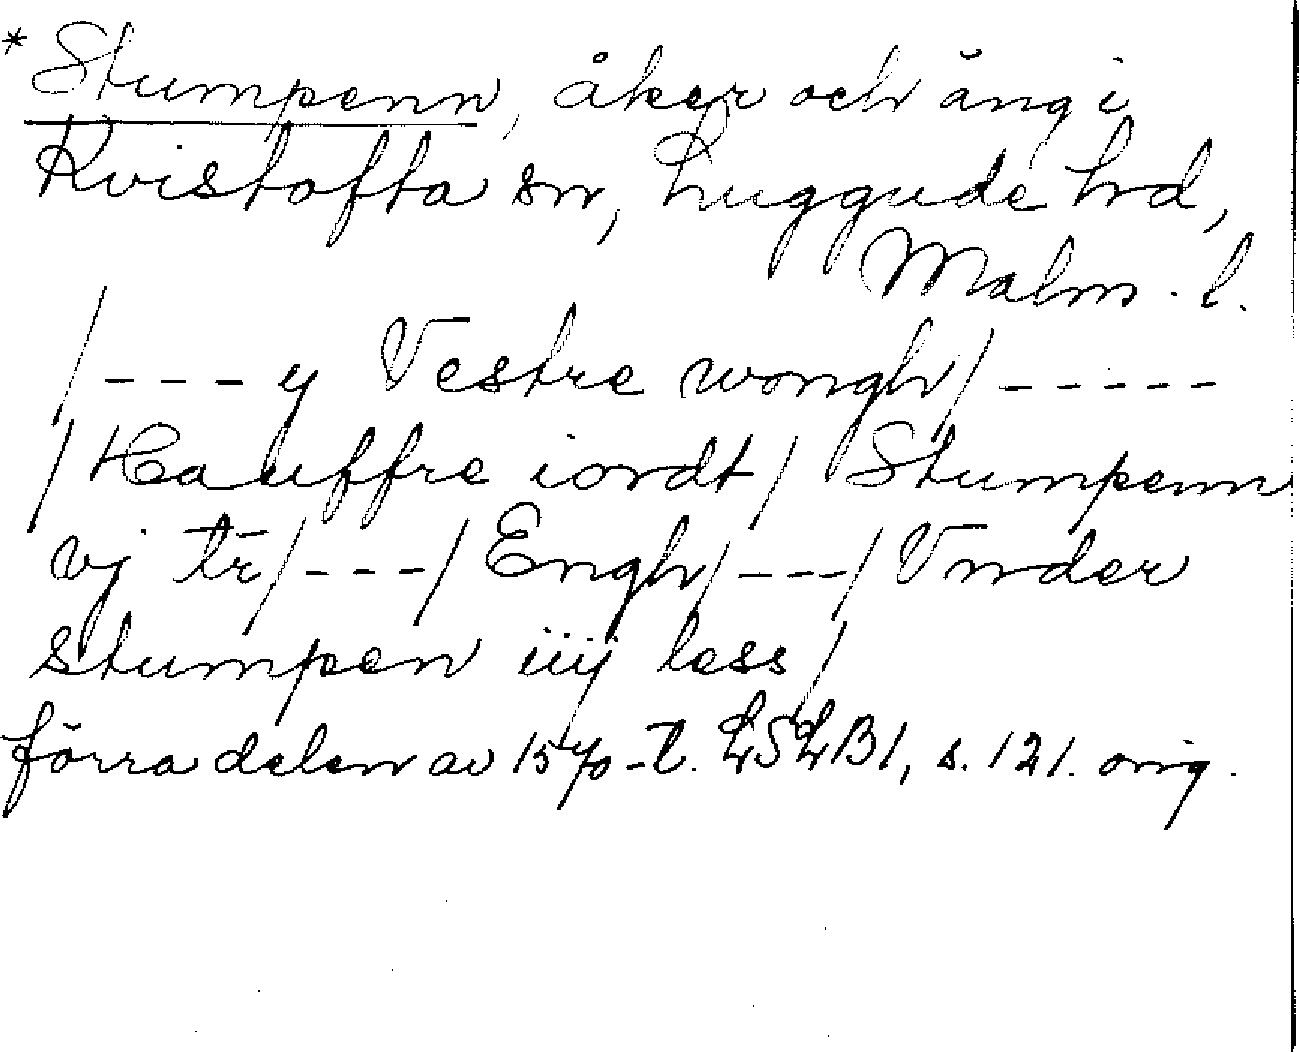 *Stumpenn, åker och äng i
Kvistofta sn, Luggude hd,
Malm. l.
/---y Vestre wongh/-----
/Hauffre iordt/ Stumpenn
vj tr̄/---/Engh/---/Vnder
stumpen iiij less/
förra delen av 1570-t. LSLB1, s. 121. orig.